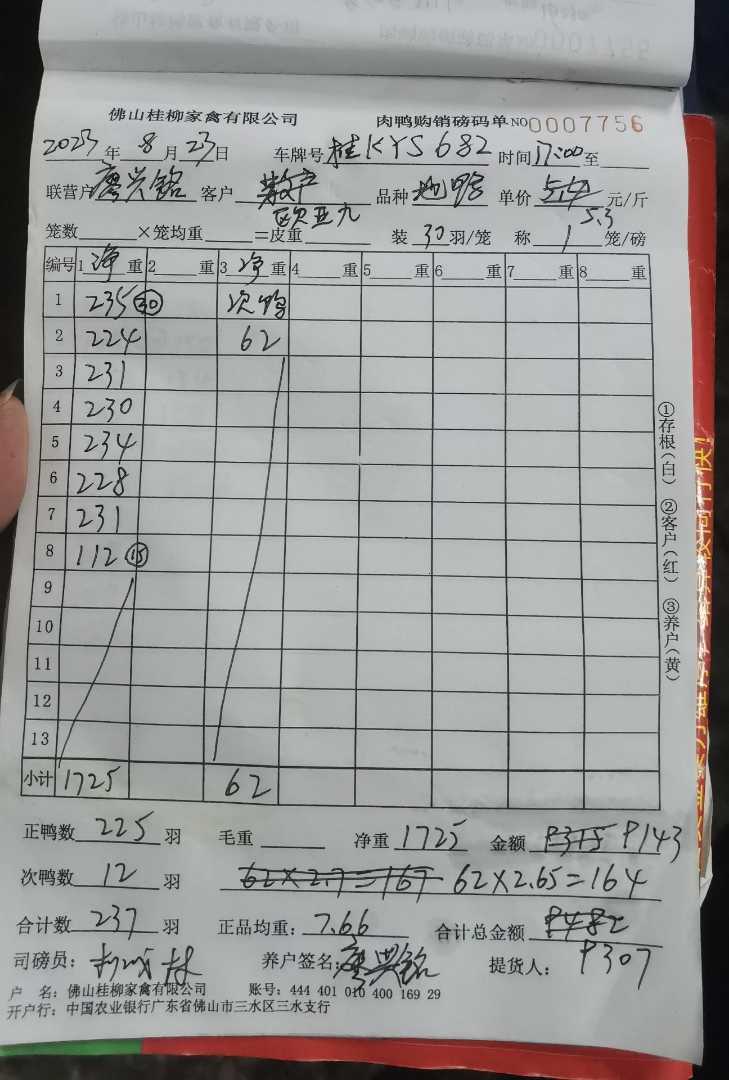 佛山桂柳家禽有限公司 肉鸭购销磅码单 NO 0007756
2023年8月23日 车牌号 桂KYS682 时间 17:00 至
联营户 廖兴铭 客户 散户 品种 地鸭 单价 5.4 元/斤
欧亚九 5.3
笼数 ×笼均重 =皮重 装 30 羽/笼 称 1 笼/磅
编号 1 净 重 2 重 3 净 重 4 重 5 重 6 重 7 重 8 重
1 235 30 次鸭
2 224 62
3 231
4 230
5 234
6 228
7 231
8 112 15
9
10
11
12
13
小计 1725 62
正鸭数 225 羽 毛重 净重 1725 金额 9315 9143
次鸭数 12 羽 62×2.7=167 62×2.65=164
合计数 237 羽 正品均重: 7.66 合计总金额 9482
司磅员: 养户签名: 廖兴铭 提货人: 9307
户 名: 佛山桂柳家禽有限公司 账号: 444 401 010 400 169 29
开户行: 中国农业银行广东省佛山市三水区三水支行
①存根(白) ②客户(红) ③养户(黄)